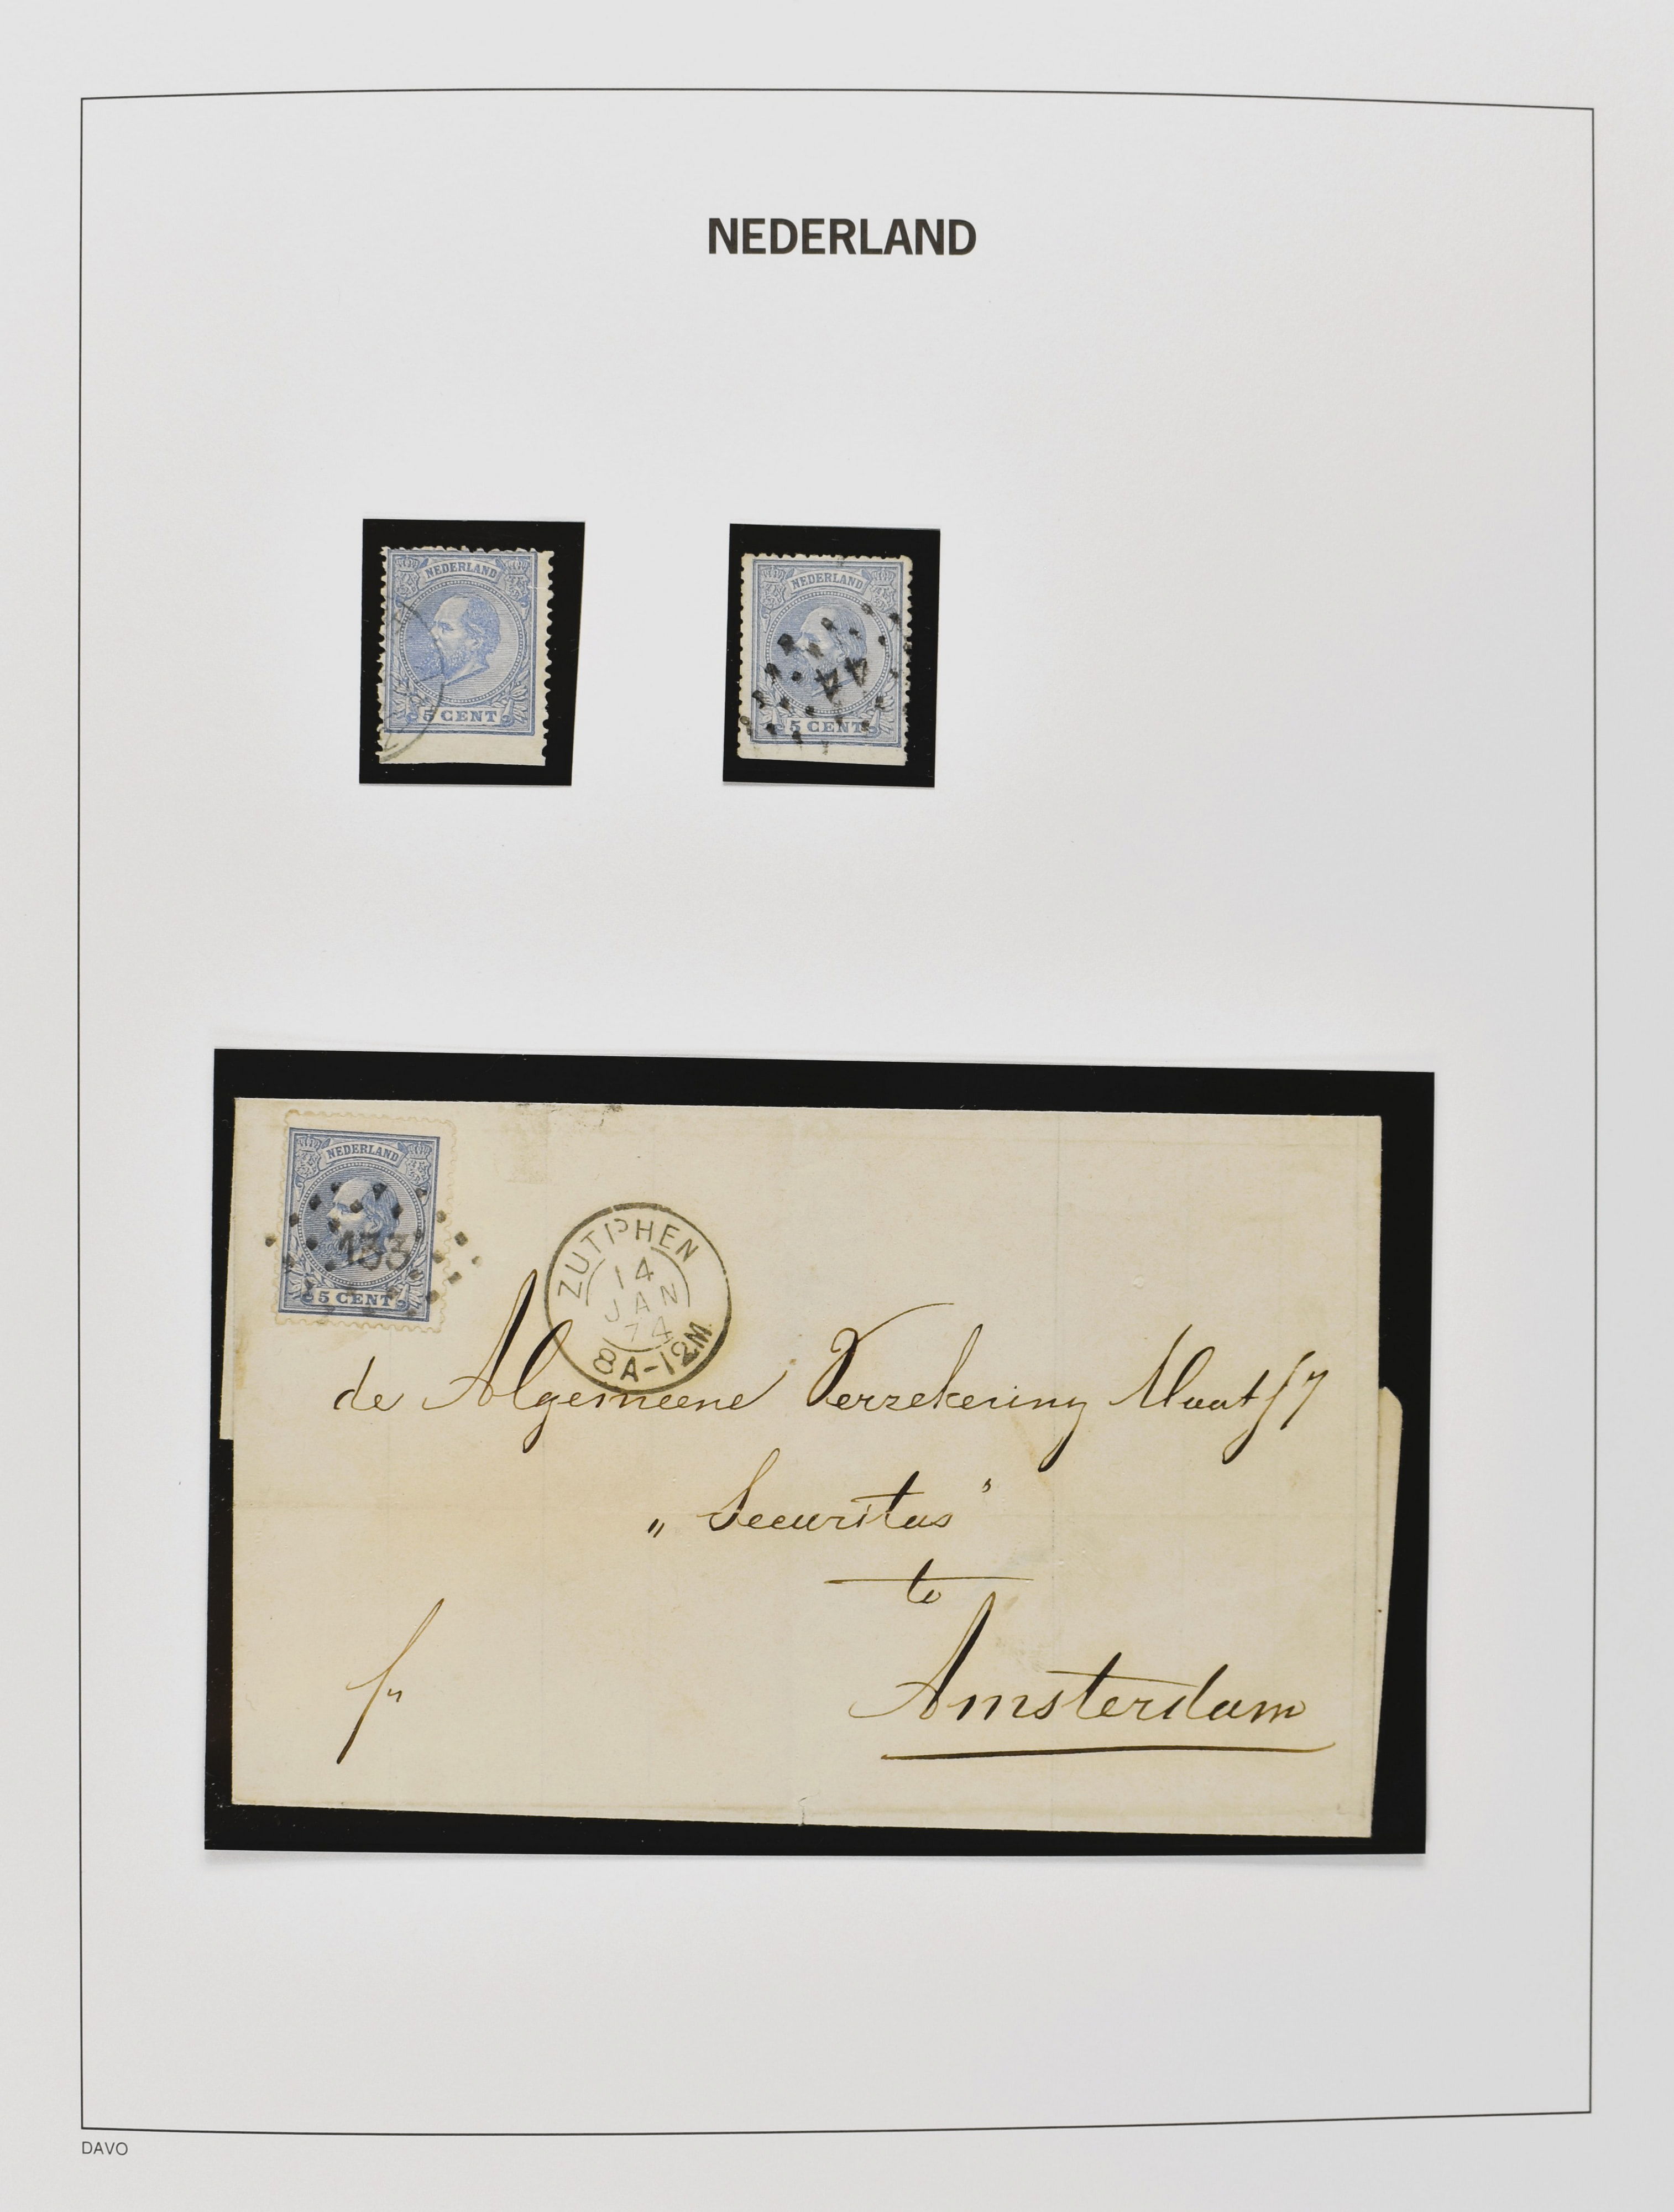 NEDERLAND
NEDERLAND
5 CENT
NEDERLAND
44
5 CENT
NEDERLAND
133
5 CENT
ZUTPHEN
14
JAN
74
8A-12M.
de Algemeene Verzekering Maats
„ Securitas "
te
Amsterdam
fr
DAVO